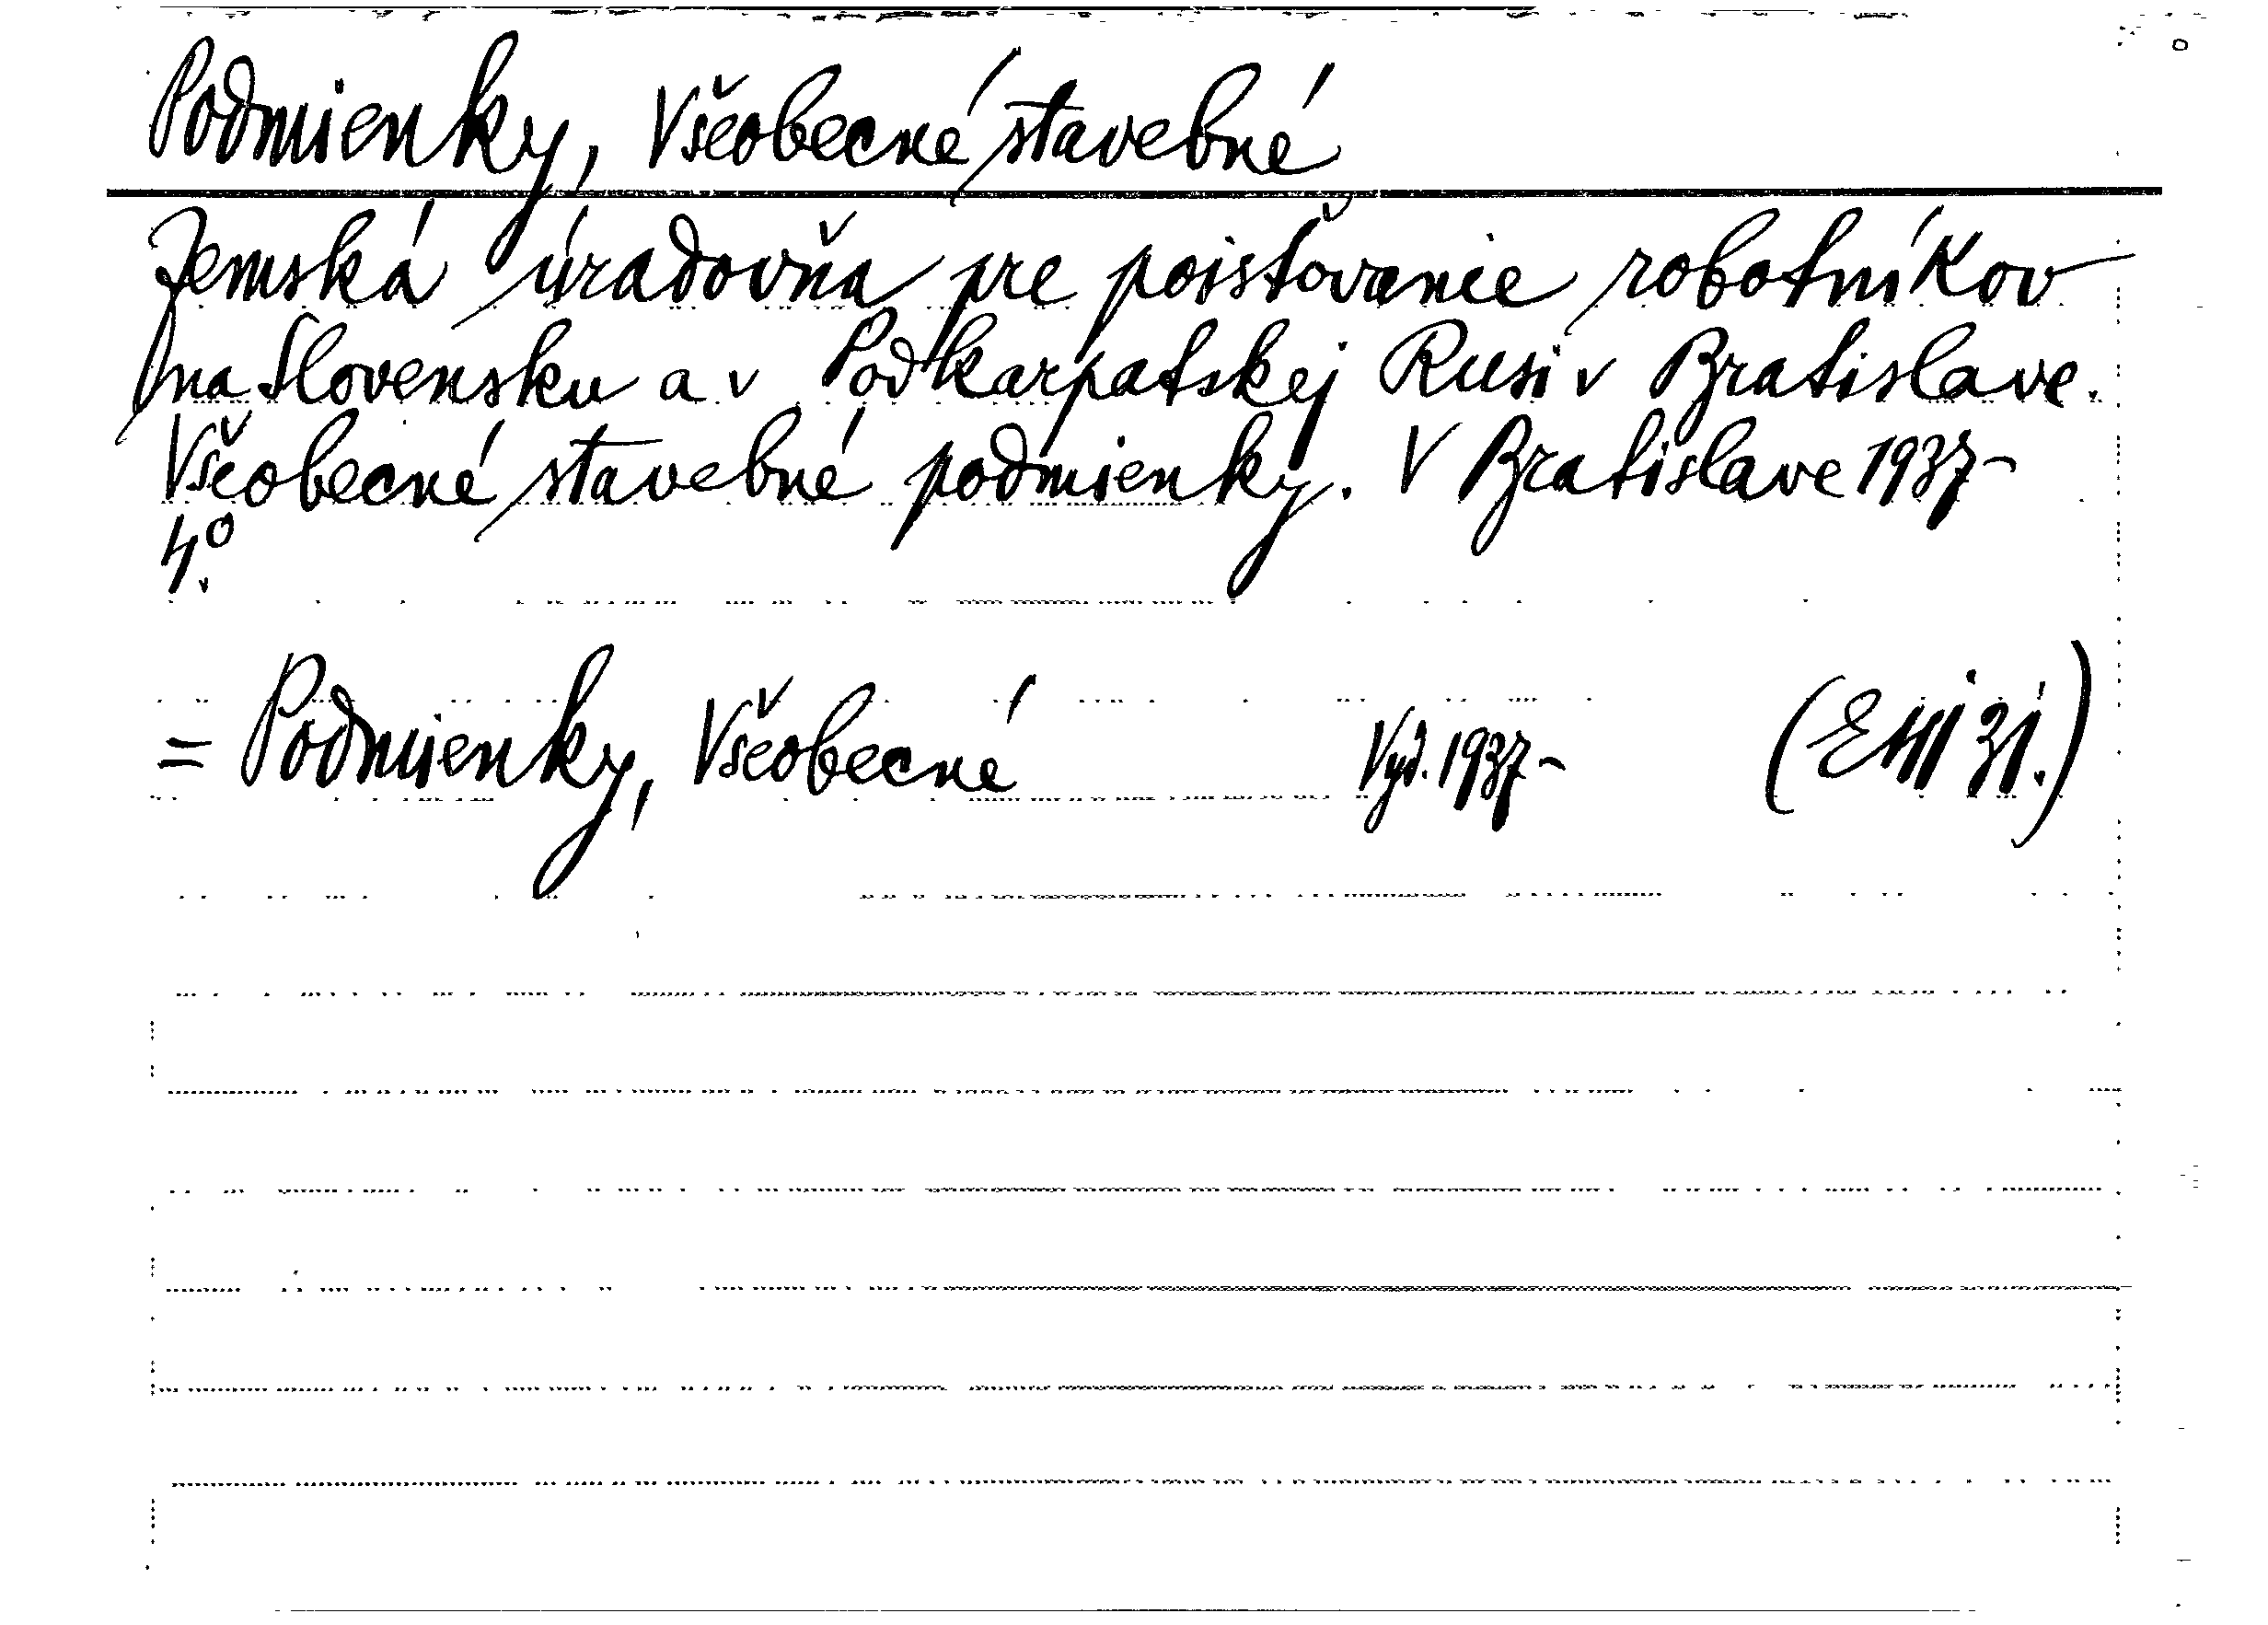 Podmienky, Všeobecné stavebné
Zemská úradovňa pre poisťovanie robotníkov
na Slovensku a v Podkarpatskej Rusi v Bratislave.
Všeobecné stavebné podmienky. V Bratislave 1937-
4°.
= Podmienky, Všeobecné Vyd. 1937-